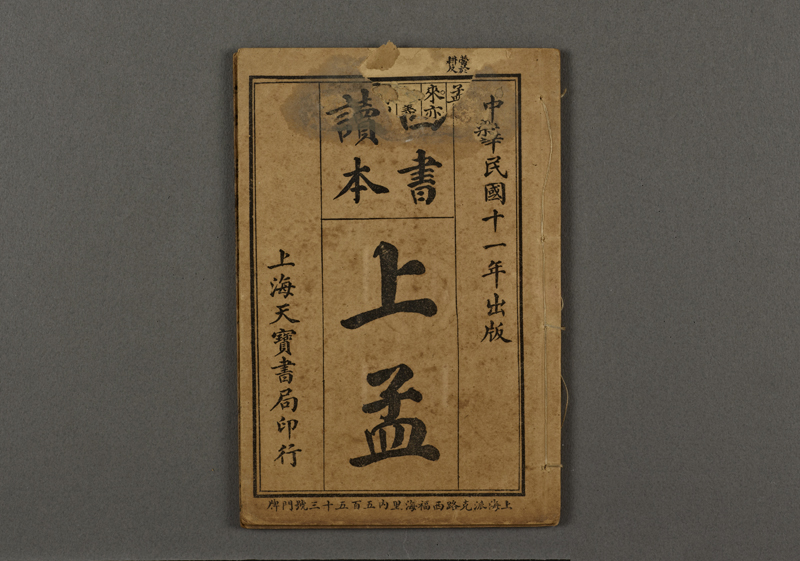 中華民國十一年出版
四書
讀本
上孟
上海天寶書局印行
上海派克路西福海里內五百五十三號門牌
孟
來亦